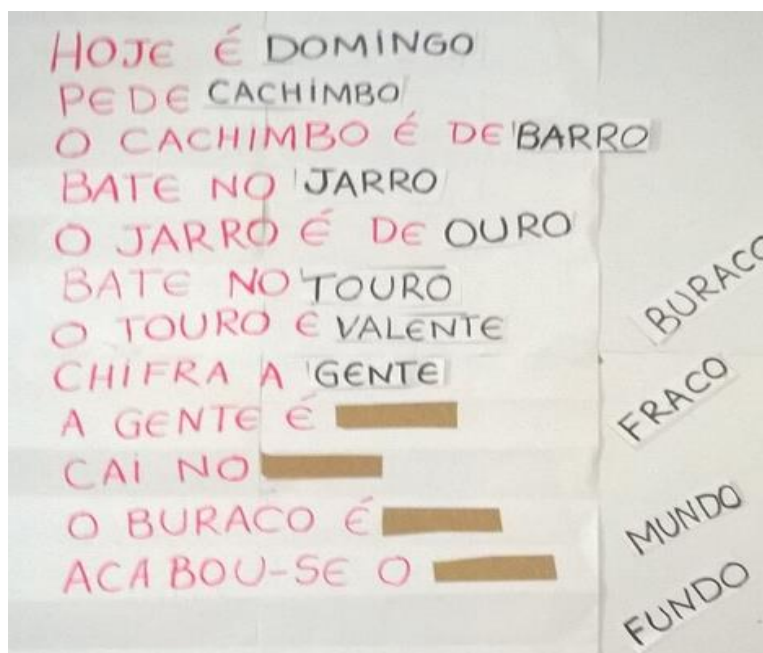 HOJE É DOMINGO
PEDE CACHIMBO
O CACHIMBO É DE BARRO
BATE NO JARRO
O JARRO É DE OURO
BATE NO TOURO
O TOURO É VALENTE
CHIFRA A GENTE
A GENTE É
CAI NO
O BURACO É
ACABOU-SE O
BURACO
FRACO
MUNDO
FUNDO